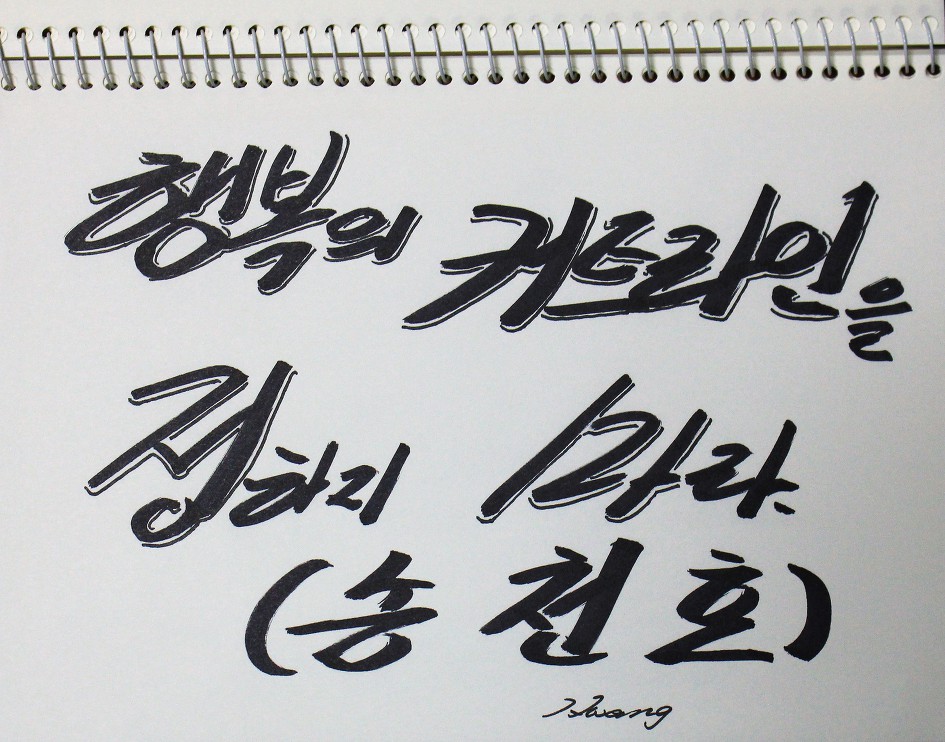 행복의 커트라인을
정하지 마라.
(송천호)
Hwang